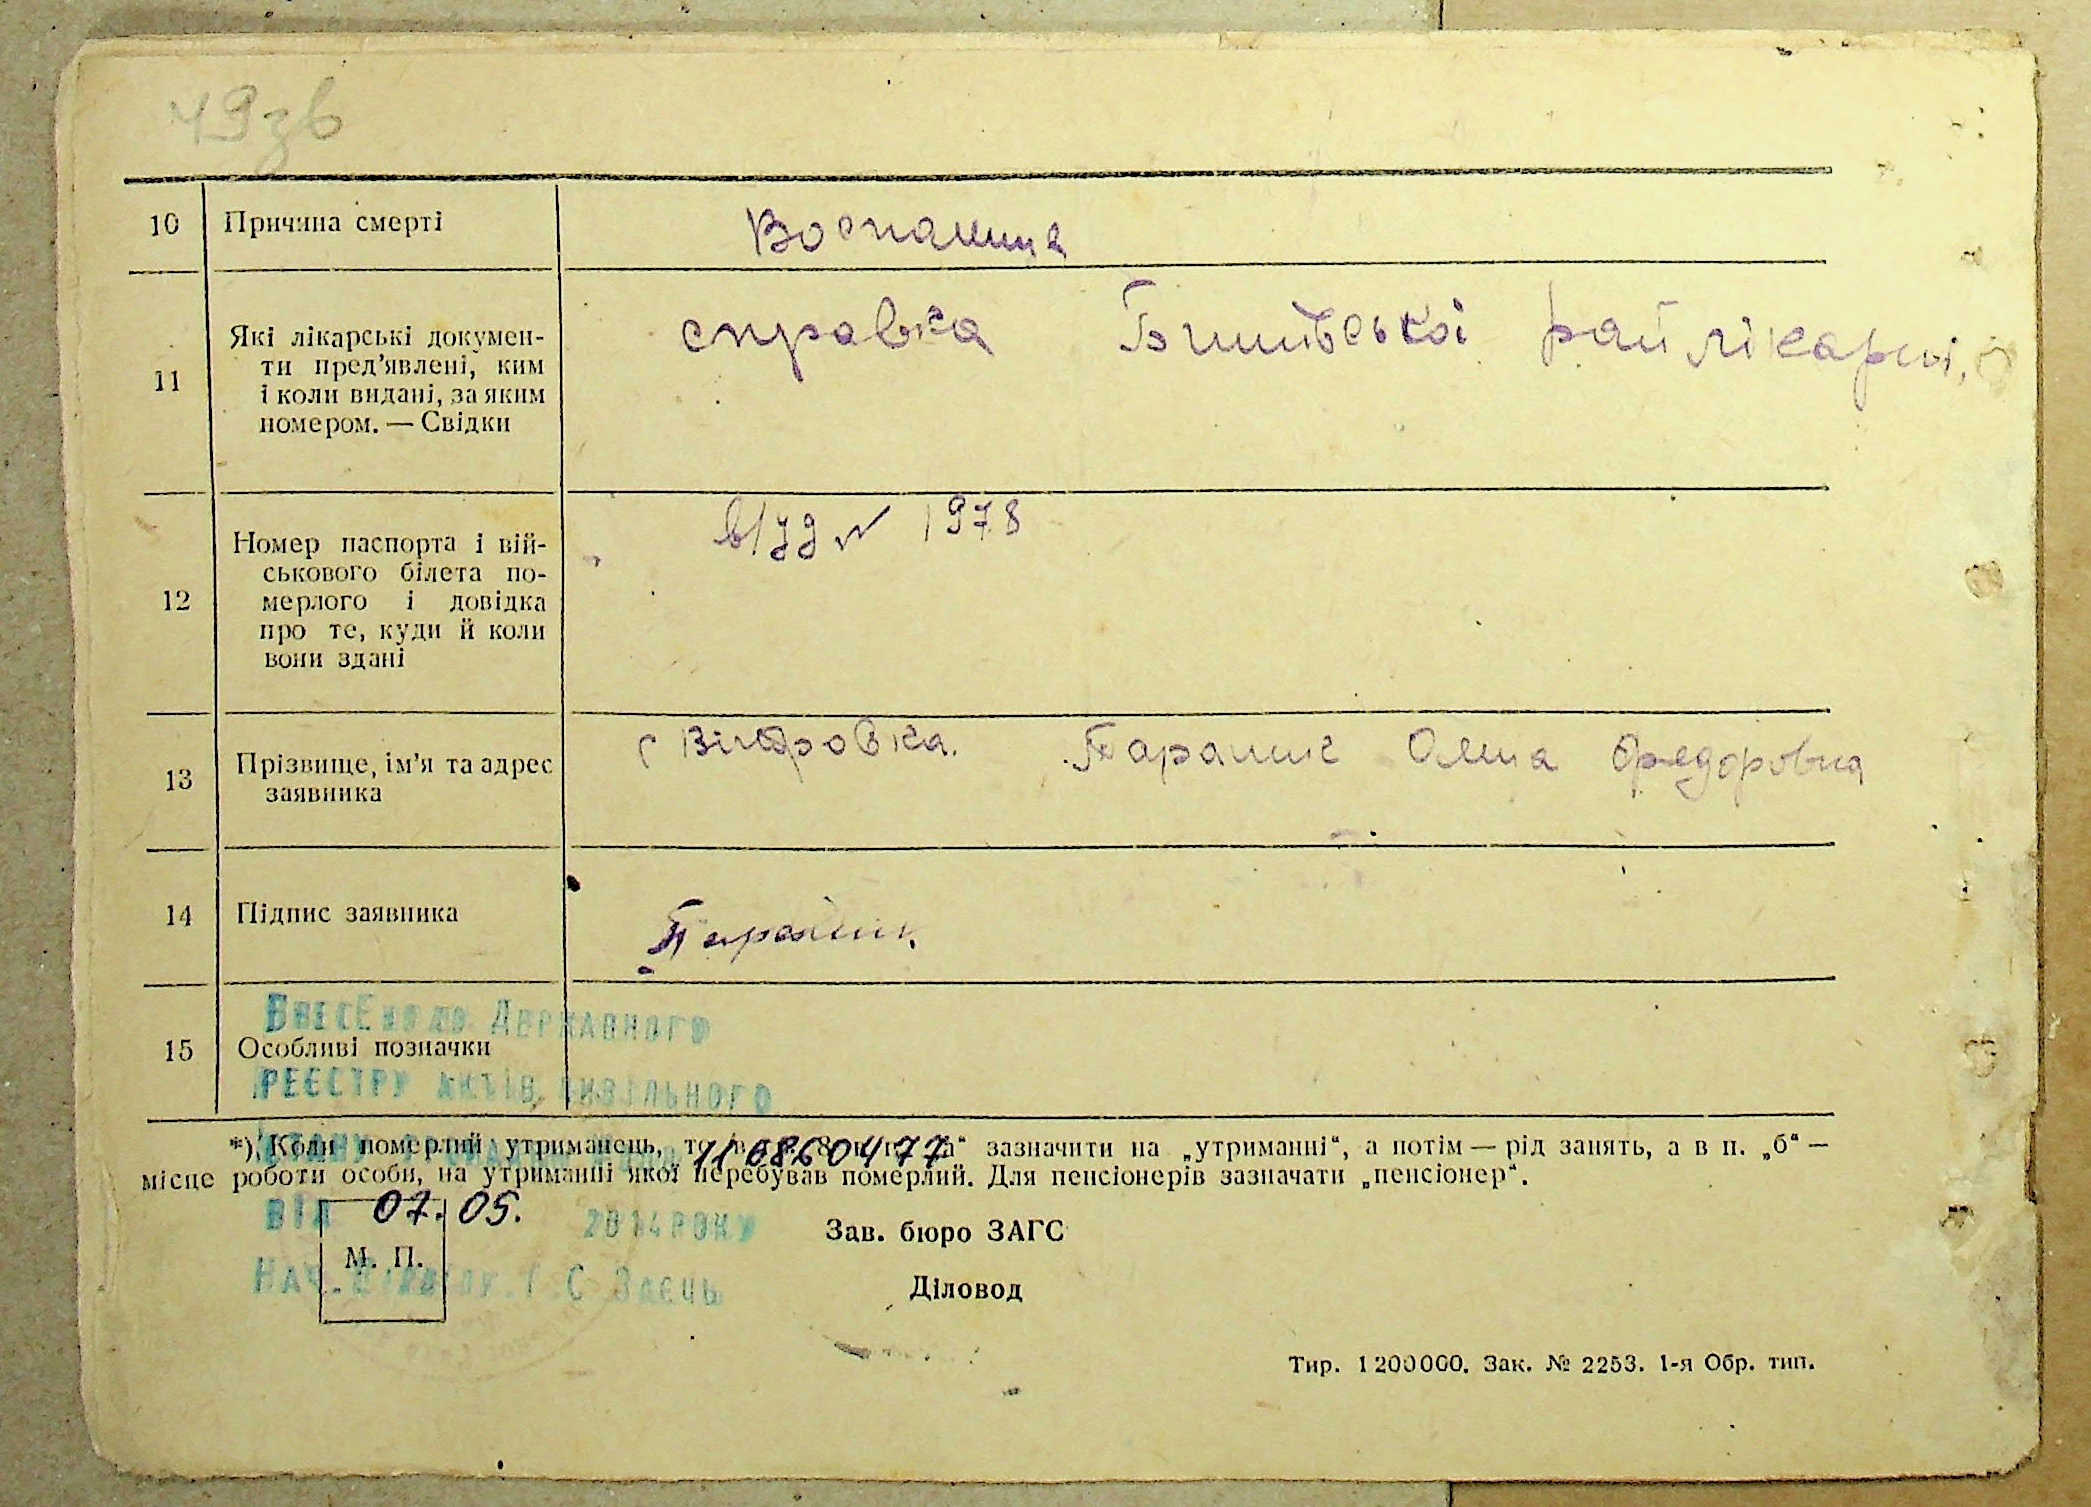 49зв
10 Причина смерті
11 Які лікарські докумен-
ти пред’явлені, ким
і коли видані, за яким
номером. — Свідки
справка райлікарні,
12 Номер паспорта і вій-
ськового білета по-
мерлого і довідка
про те, куди й коли
вони здані
1978
13 Прізвище, ім’я та адрес
заявника
с Федоровна
14 Підпис заявника
Внесено до Державного
15 Особливі позначки
реєстру актів цивільного
*) Коли померлий утриманець, то в п. 8 зазначити на „утриманні“, а потім — рід занять, а в п. „б“ —
1108860477
місце роботи особи, на утриманні якої перебував померлий. Для пенсіонерів зазначати „пенсіонер“.
від 07.05. 2014 року
Зав. бюро ЗАГС
М. П.
Нач. відділу
Діловод
Тир. 1200000. Зак. № 2253. 1-я Обр. тип.